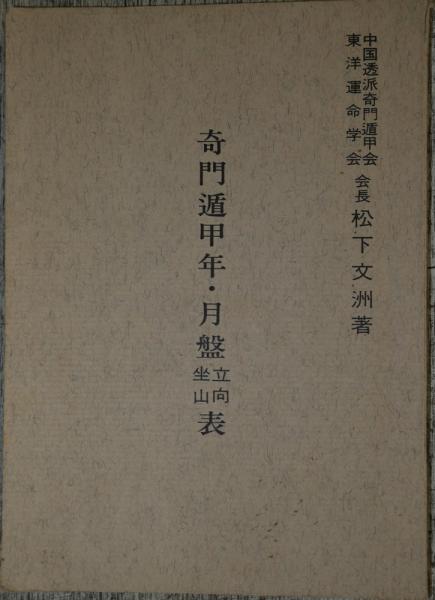 中国透派奇門遁甲会
東洋運命学会
会長 松下文洲著
奇門遁甲年・月盤立向坐山表